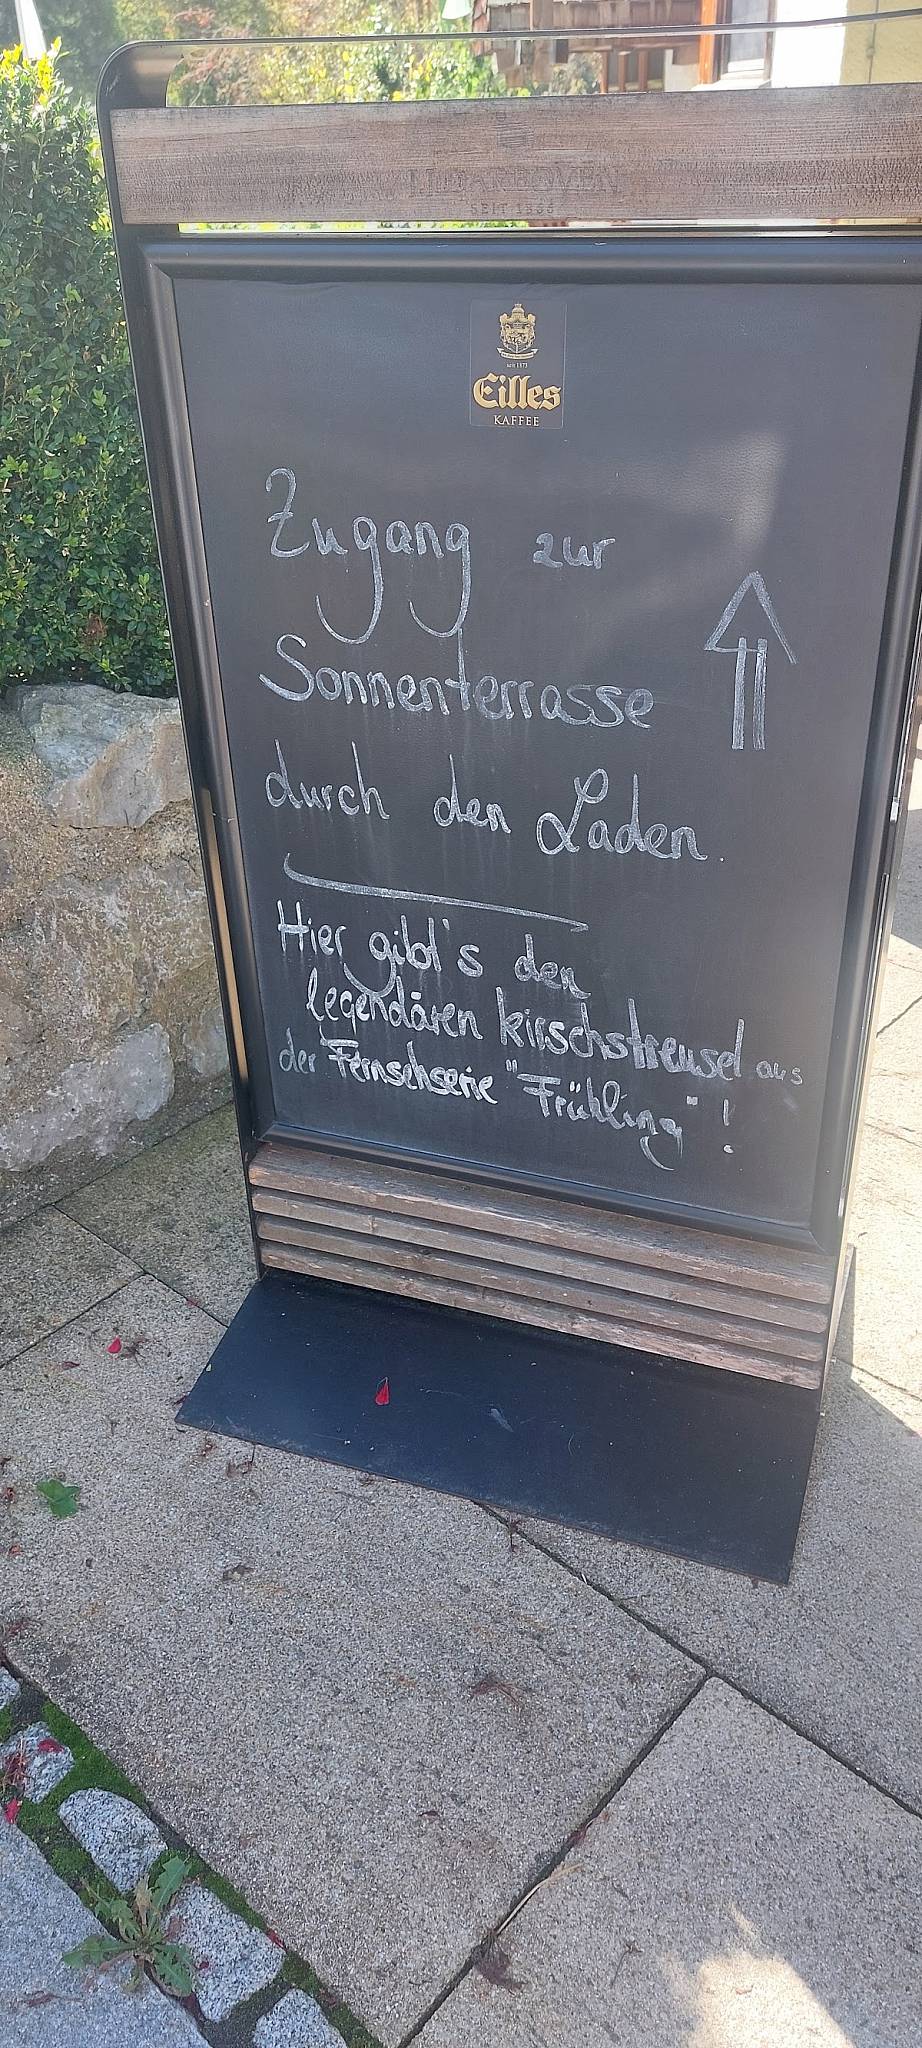 SEIT 1535
seit 1873
Eilles
KAFFEE
Zugang zur
Sonnenterrasse
durch den Laden.
Hier gibt's den
legendären kirschstreusel aus
der Fernsehserie "Frühling" !